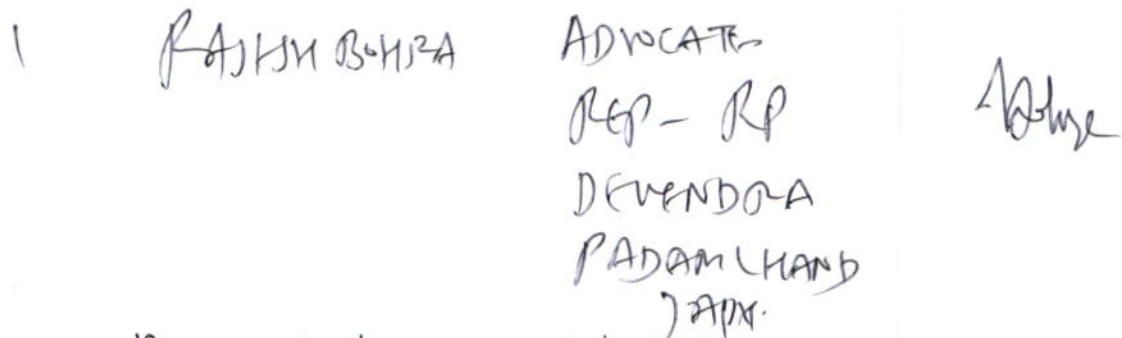 1 RAJESH BOHRA ADVOCATE
REP - RP
DEVENDRA
PADAMCHAND
JAIN.